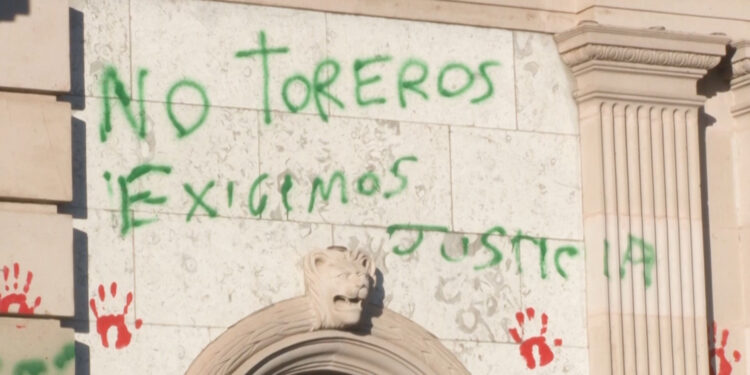 NO TOREROS
¡EXIGIMOS
JUSTICIA